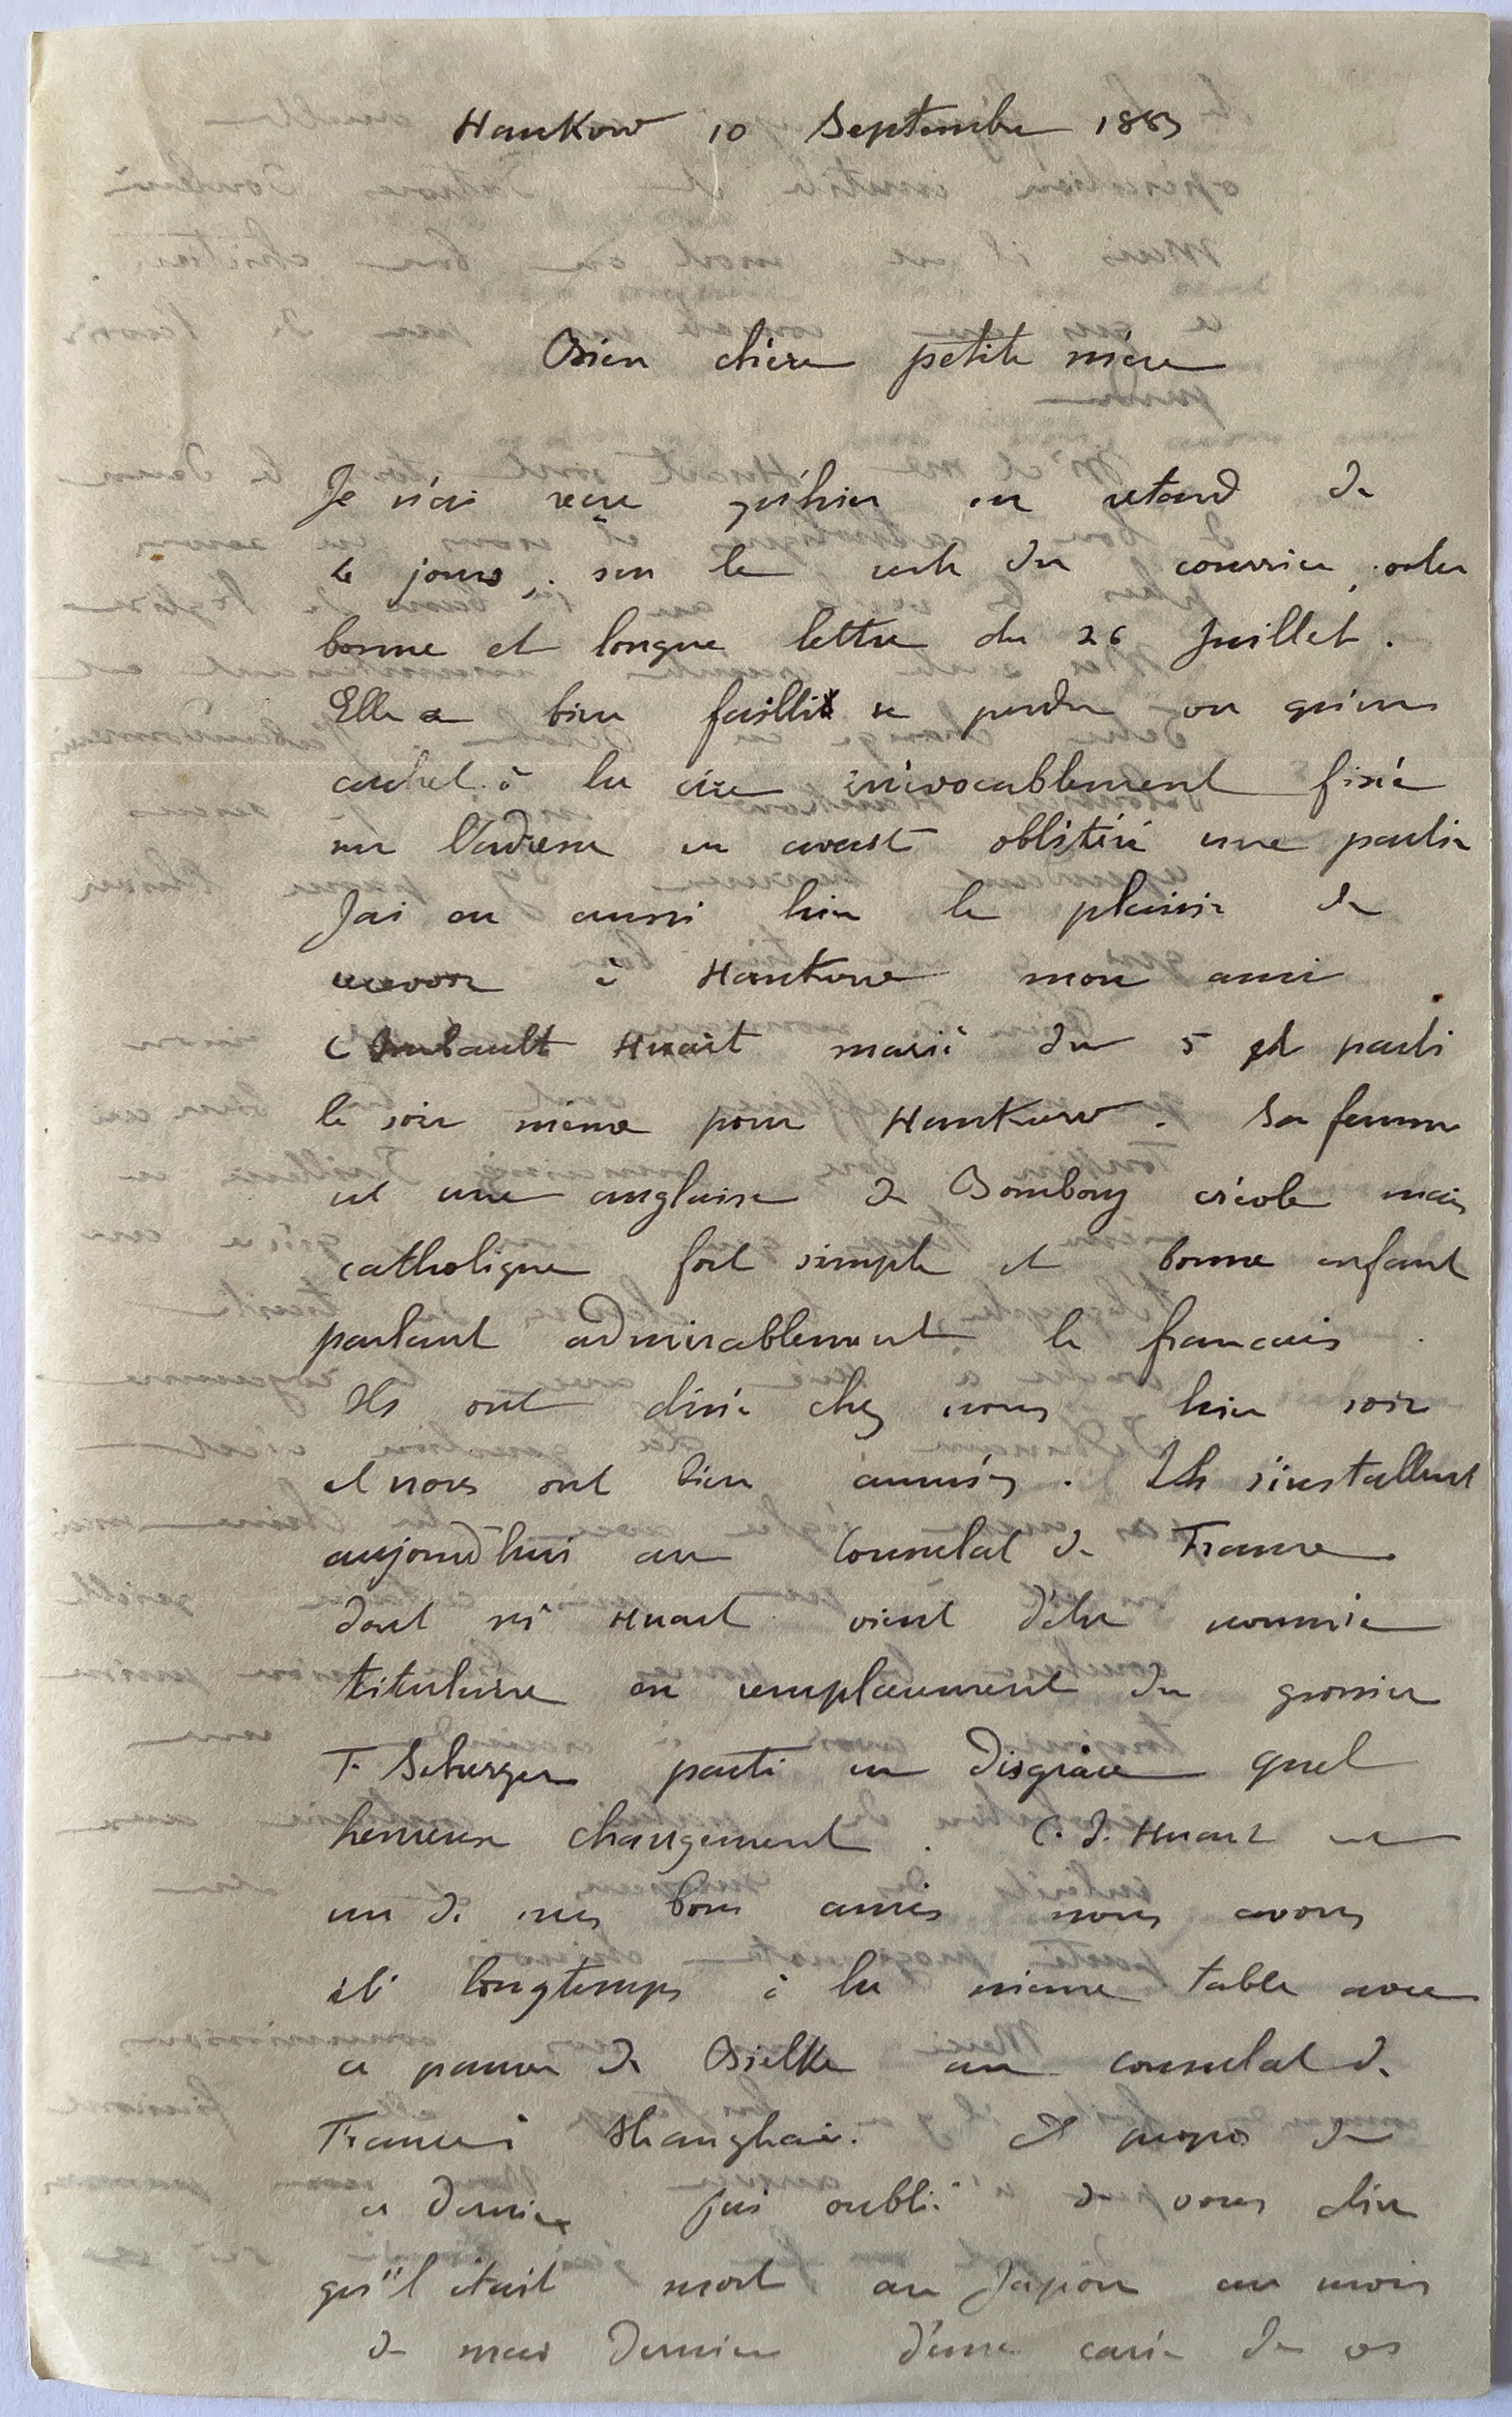 Hankow 10 Septembre 1883
Bien chère petite mère
Je n'ai reçu qu'hier en retard de
4 jours, sur le reste du courrier, votre
bonne et longue lettre du 26 Juillet.
Elle a bien failli se perdre vu qu'un
cachet à la cire irrévocablement fixé
sur l'adresse en avait oblitéré une partie
J'ai eu aussi hier le plaisir de
recevoir à Hankow mon ami
C Imbault Huart marié du 5 et parti
le soir même pour Hankow. Sa femme
est une anglaise de Bombay créole mais
catholique fort simple et bonne enfant
parlant admirablement le francais.
Ils ont diné chez nous hier soir
et nous ont bien amusés. Ils s'installent
aujourd'hui au Consulat de France
dont Mr Huart vient d'être nommé
titulaire en remplacement du grossier
F. Scherzer parti en disgrâce quel
heureux changement. C. I. Huart est
un de mes bons amis nous avons
été longtemps à la même table avec
ce pauvre de Bielke au consulat de
France à Shanghai. A propos de
ce dernier j'ai oublié de vous dire
qu'il était mort au Japon au mois
de mai dernier d'une carie de os